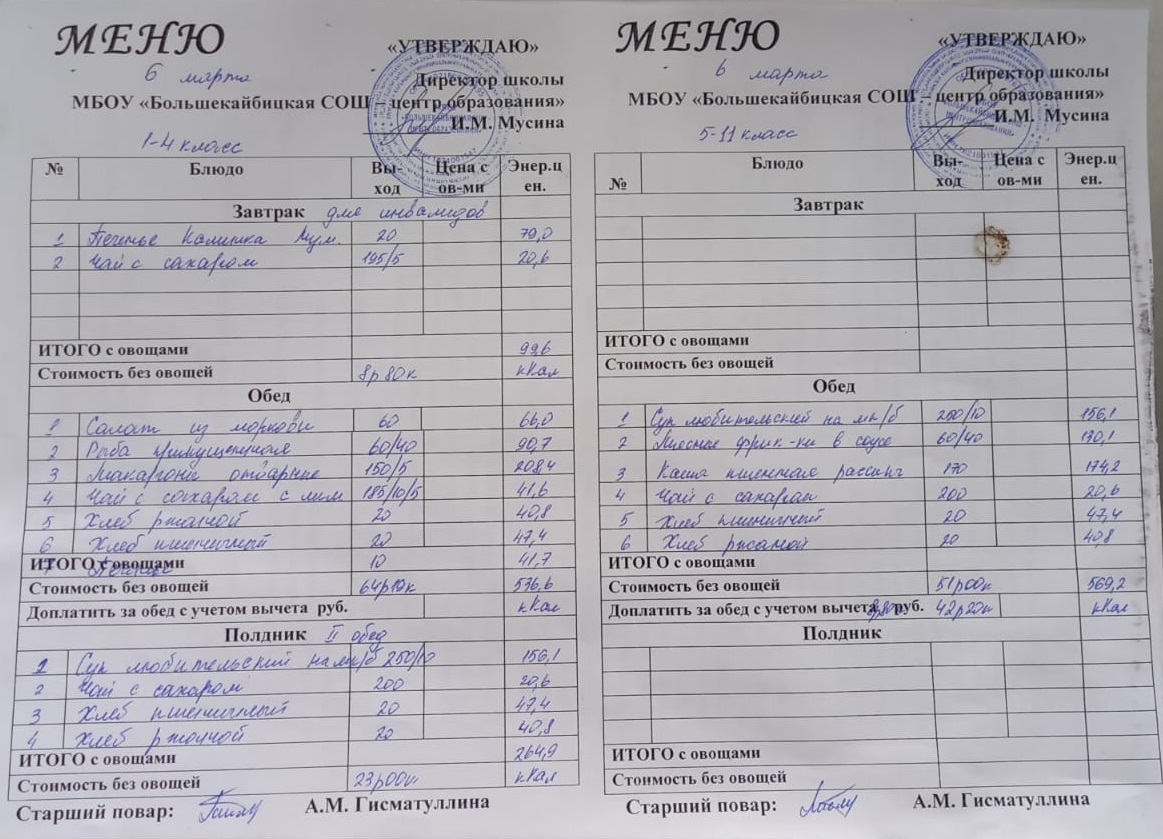 МЕНЮ
«УТВЕРЖДАЮ»
6 марта
Директор школы
МБОУ «Большекайбицкая СОШ – центр образования»
И.М. Мусина
1-4 класс
№ Блюдо Вы-ход Цена с ов-ми Энер.ц ен.
Завтрак для инвалидов
1 Печенье Калинка 20 79,0
2 Чай с сахаром 195/5 20,6
ИТОГО с овощами 99,6
Стоимость без овощей 8р80к кКал
Обед
1 Салат из моркови 60 66,0
2 Рыба припущенная 60/40 90,7
3 Макароны отварные 150/5 208,4
4 Чай с сахаром с лим 185/10/5 41,6
5 Хлеб ржаной 20 40,8
6 Хлеб пшеничный 20 47,4
7 Печенье 10 41,7
ИТОГО с овощами
Стоимость без овощей 64р80к 536,6
Доплатить за обед с учетом вычета руб. кКал
Полдник II обед
1 Суп любительский на мк/б 250/10 156,1
2 Чай с сахаром 200 20,6
3 Хлеб пшеничный 20 47,4
4 Хлеб ржаной 20 40,8
ИТОГО с овощами 264,9
Стоимость без овощей 23р00к кКал
Старший повар: А.М. Гисматуллина
МЕНЮ
«УТВЕРЖДАЮ»
6 марта
Директор школы
МБОУ «Большекайбицкая СОШ – центр образования»
И.М. Мусина
5-11 класс
№ Блюдо Вы-ход Цена с ов-ми Энер.ц ен.
Завтрак
ИТОГО с овощами
Стоимость без овощей
Обед
1 Суп любительский на мк/б 250/10 156,1
2 Мясные фрик-ки в соусе 60/40 130,1
3 Каша пшенная рассып 170 174,2
4 Чай с сахаром 200 20,6
5 Хлеб пшеничный 20 47,4
6 Хлеб ржаной 20 40,8
ИТОГО с овощами
Стоимость без овощей 51р00к 569,2
Доплатить за обед с учетом вычета 8р80к руб. 42р20к кКал
Полдник
ИТОГО с овощами
Стоимость без овощей
Старший повар: А.М. Гисматуллина